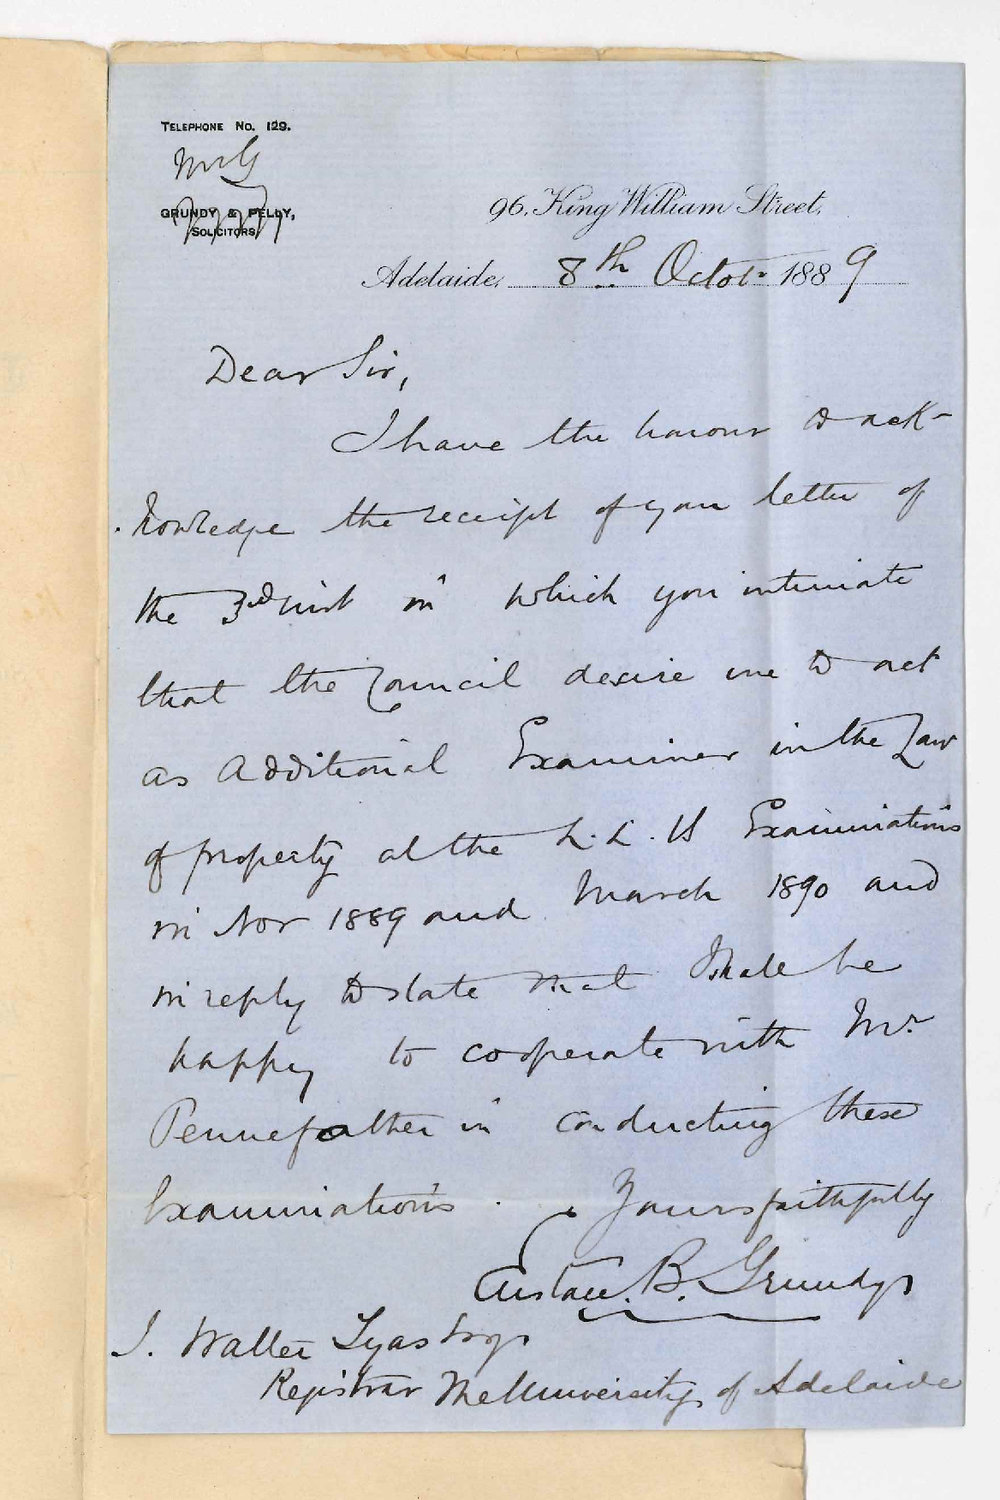 TELEPHONE No. 129.
GRUNDY & PELLY,
SOLICITORS.
96. King William Street.
Adelaide, 8th Octobr 1889
Dear Sir,
I have the honour to ack-
-nowledge the receipt of your letter of
the 3rd inst in which you intimate
that the Council desire me to act
as Additional Examiner in the Law
of property at the L.L.B Examinations
in Nov 1889 and March 1890 and
in reply to state that I shall be
happy to cooperate with Mr
Pennefather in conducting these
Examinations.
Yours faithfully
Gustave. B. Grundy
J. Walter Tyas Esqr
Registrar The University of Adelaide